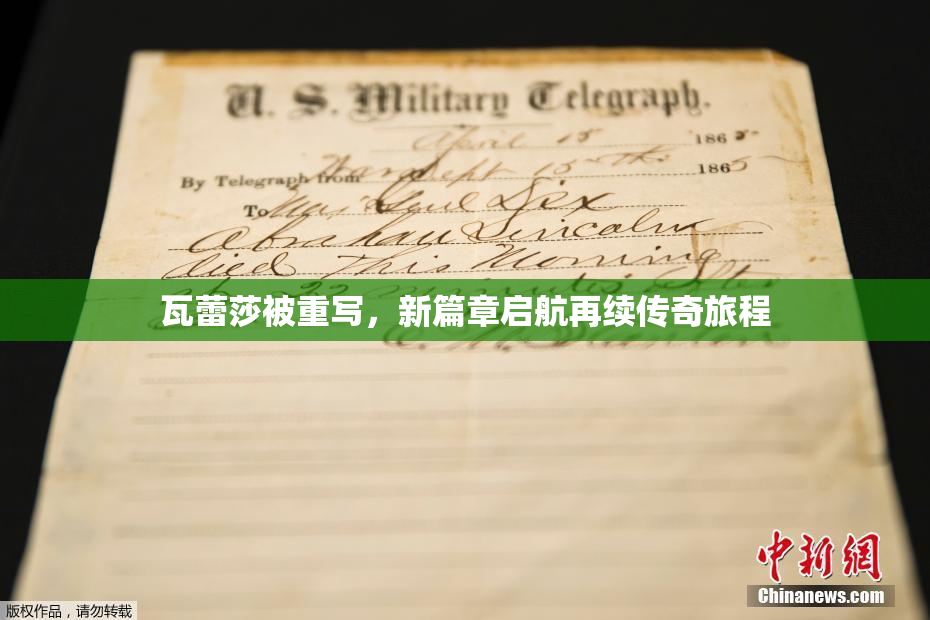 U. S. Military Telegraph.
April 15 1865
By Telegraph from War Dept 15th 1865
To Maj Genl Dix
Abraham Lincoln
died This Morning
at 22 minutes after
瓦蕾莎被重写，新篇章启航再续传奇旅程
E. M. Stanton
中新网
Chinanews.com
版权作品，请勿转载